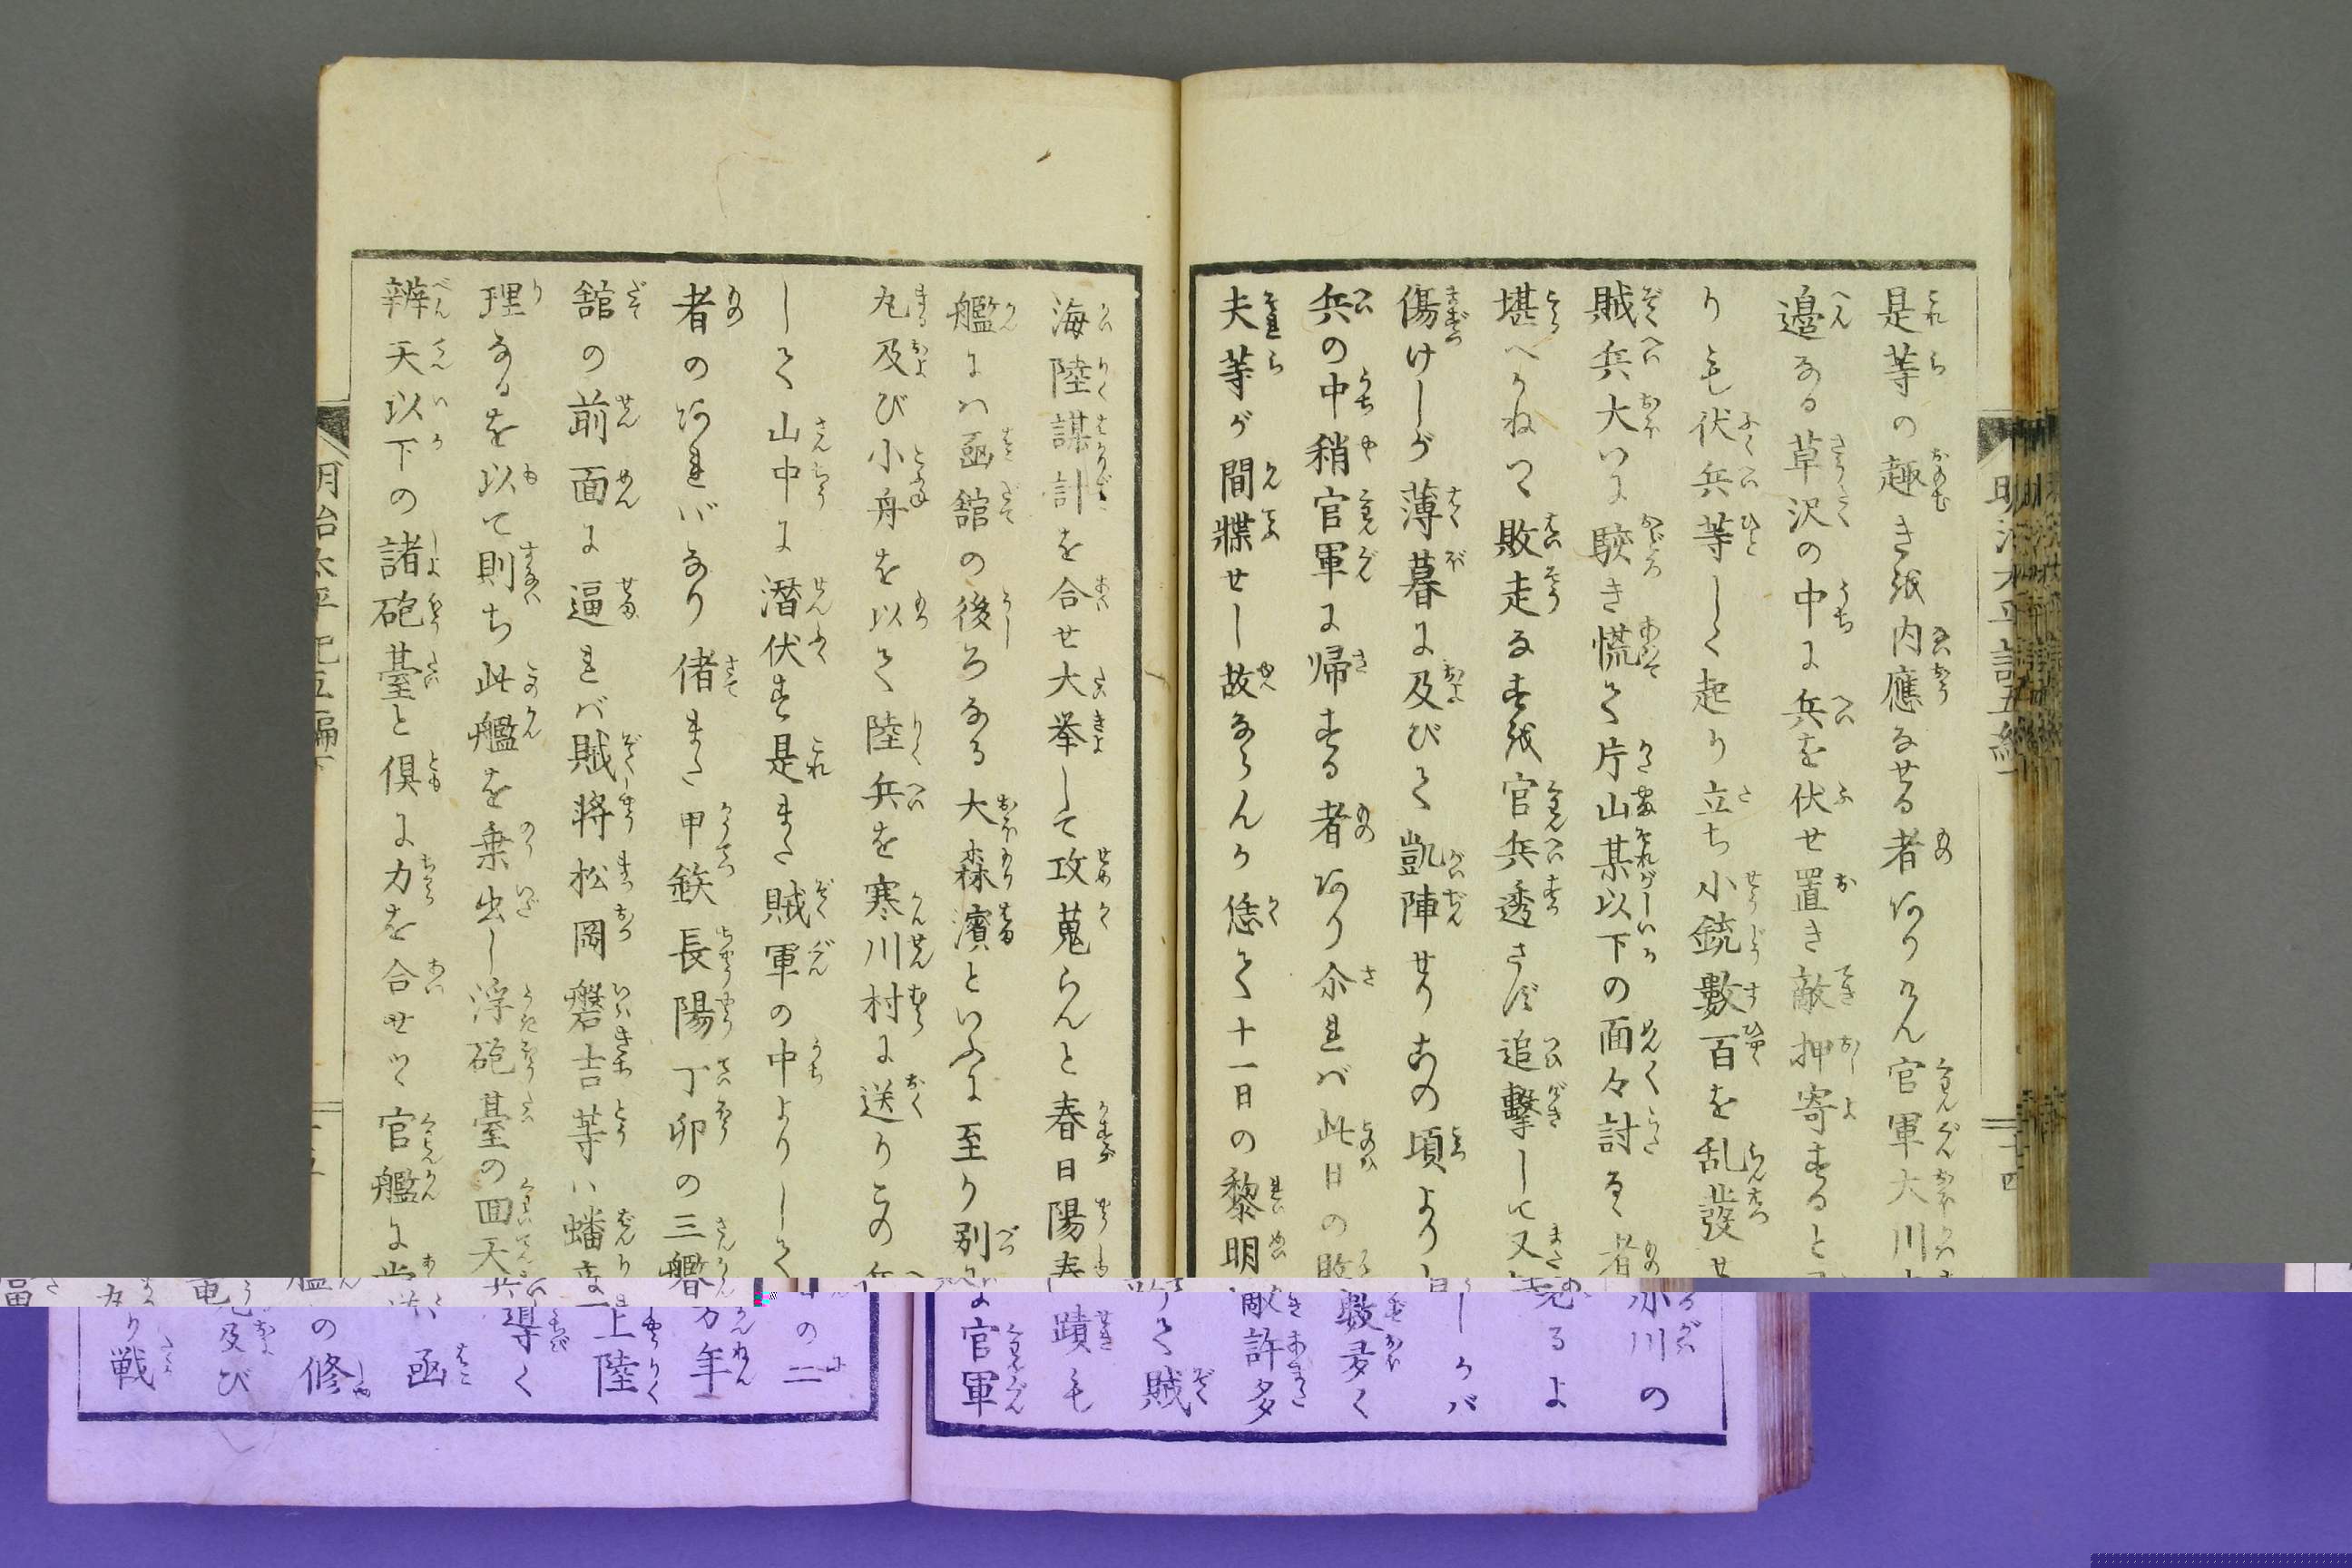 是等の趣き越内應なせる者ありけん官軍大川
邉なる草沢の中に兵を伏せ置き敵押寄すると
りも伏兵等しく起り立ち小銃數百を乱發せ
賊兵大いに駭き慌て片山某以下の面々討るゝ者
堪へかねつゝ敗走なす越官兵透さず追撃して又
傷けしが薄暮に及びて凱陣せりこの頃より
兵の中稍官軍に帰する者あり尒れば此日の敗
夫等が間牒せし故ならんか恁て十一日の黎明
海陸謀計を合せ大挙して攻蒐らんと春日陽春
艦には函舘の後ろなる大森濱といふに至り別に
丸及び小舟を以て陸兵を寒川村に送りこの兵
して山中に潜伏す是また賊軍の中よりして
者のあればなり偖また甲鉄長陽丁卯の三艦
舘の前面に逼れば賊将松岡磐吉等ハ蟠龍
理なるを以て則ち此艦を乗出し浮砲臺の回天
辨天以下の諸砲臺と倶に力を合せつゝ官艦に當
明治太平記五編下
十四
川の
るよ
しかバ
數多く
敵許多
りて賊
蹟も
官軍
の二
万年
上陸
導く
函
の修
及び
り戦